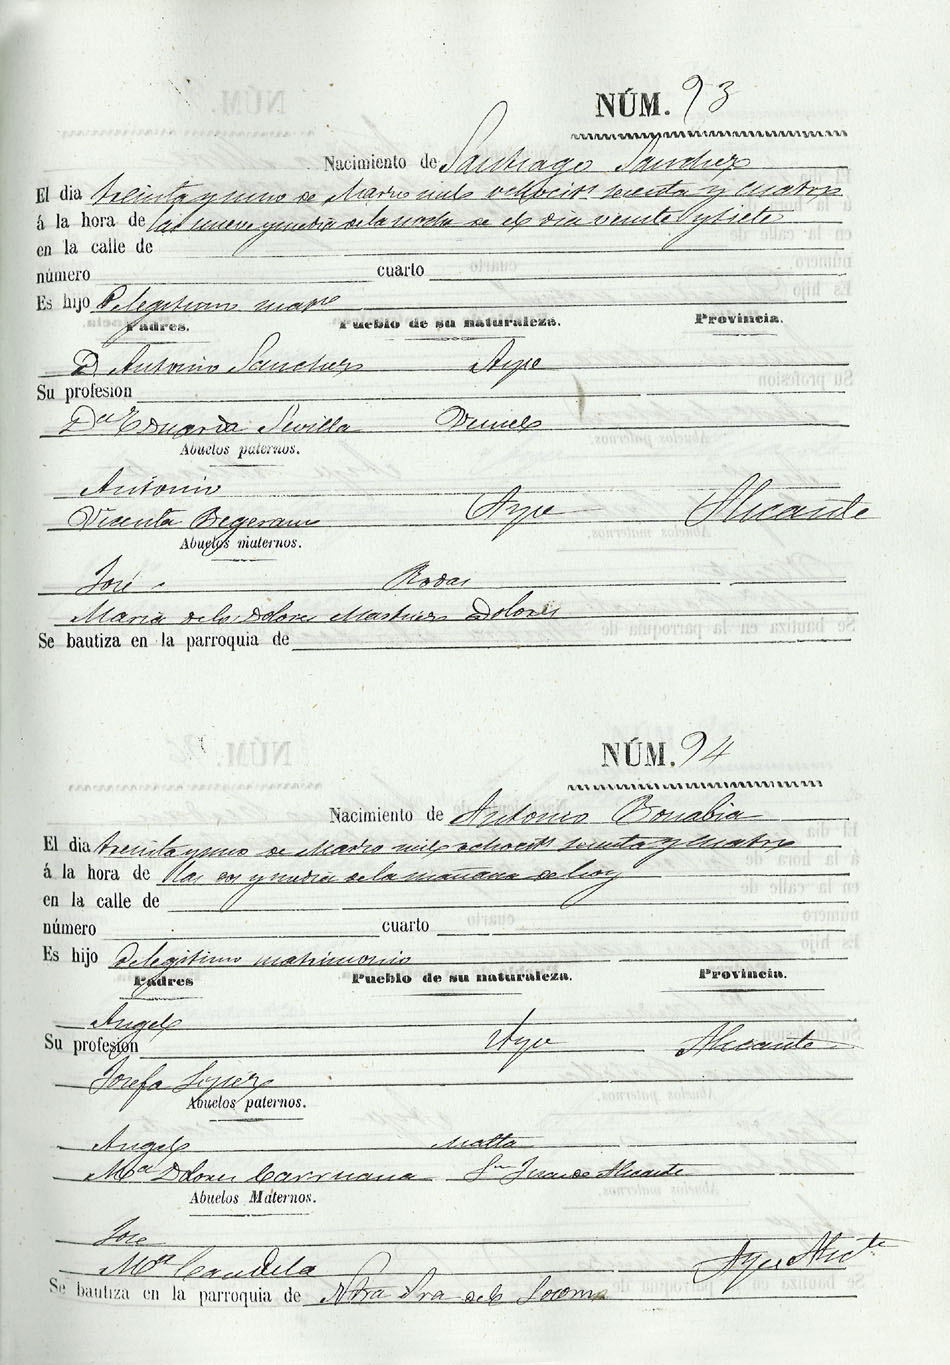 NÚM. 93
Nacimiento de Santiago Sanchez
El dia treinta y uno de Marzo mil ochocits. sesenta y cuatro
á la hora de las nueve y media de la noche de el dia veinte y siete
en la calle de
número cuarto
Es hijo de legitimo matro
Padres. Pueblo de su naturaleza. Provincia.
D Antonio Sanchez Aspe
Su profesion
Da Eduarda Sevilla
Abuelos paternos.
Antonio
Vicenta Aspe Alicante
Abuelos maternos.
José
Maria de los Dolores Martinez Dolores
Se bautiza en la parroquia de
NÚM. 94
Nacimiento de Antonio Bonabia
El dia treinta y uno de Marzo mil ochocits sesenta y cuatro
á la hora de las dos y media de la mañana de hoy
en la calle de
número cuarto
Es hijo de legitimo matrimonio
Padres Pueblo de su naturaleza. Provincia.
Angel
Su profesion Aspe Alicante
Josefa Lopez
Abuelos paternos.
Angel Malta
Ma Dolores Carruana Sn Juan de Alicante
Abuelos Maternos.
José
Ma Candela Aspe Alicte
Se bautiza en la parroquia de Ntra Sra del Socorro